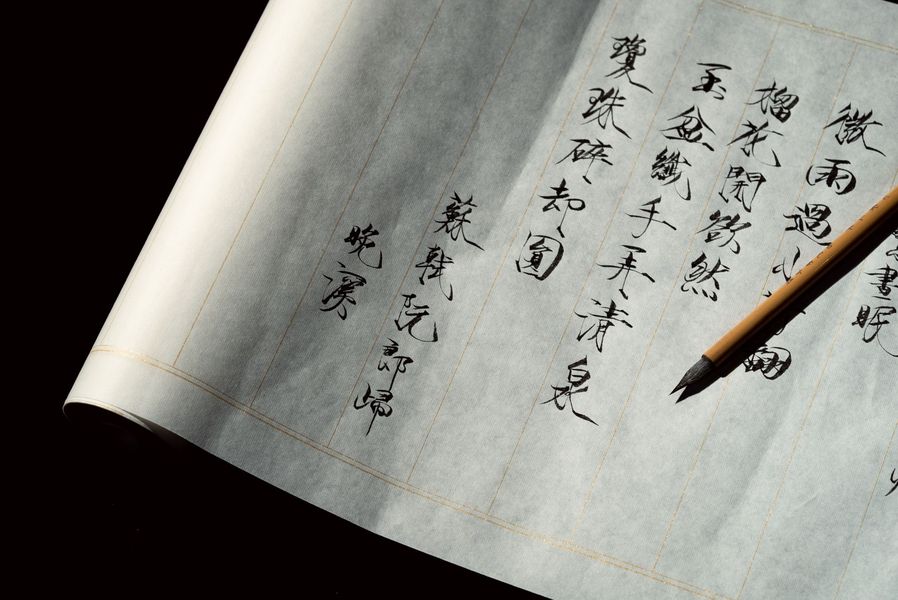 晝眠
微雨過小翻
榴花開欲然
玉盆纖手弄清泉
瓊珠碎却圓
蘇軾阮郎歸
晚